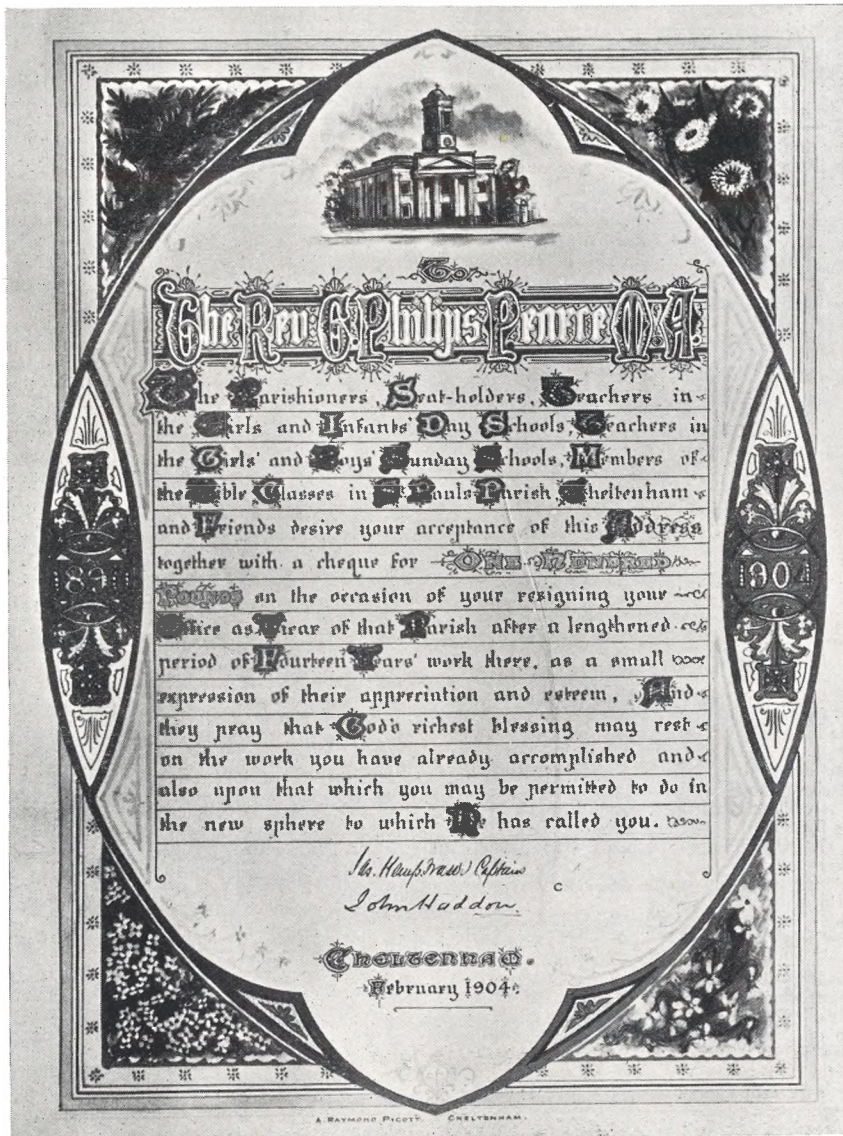 To
The Rev: G. Philips Pearce M.A.
The Parishioners, Seat-holders, Teachers in
the Girls and Infants' Day Schools, Teachers in
the Girls' and Boys' Sunday Schools, Members of
the Bible Classes in St Pauls Parish, Cheltenham
and Friends desire your acceptance of this Address
together with a cheque for One Hundred
Pounds on the occasion of your resigning your
Office as Vicar of that Parish after a lengthened
period of Fourteen Years' work there, as a small
expression of their appreciation and esteem, And
they pray that God's richest blessing may rest
on the work you have already accomplished and
also upon that which you may be permitted to do in
the new sphere to which He has called you.
1890
1904
Captain
John Haddon.
C
Cheltenham.
February 1904.
A. RAYMOND PIGOTT. CHELTENHAM.